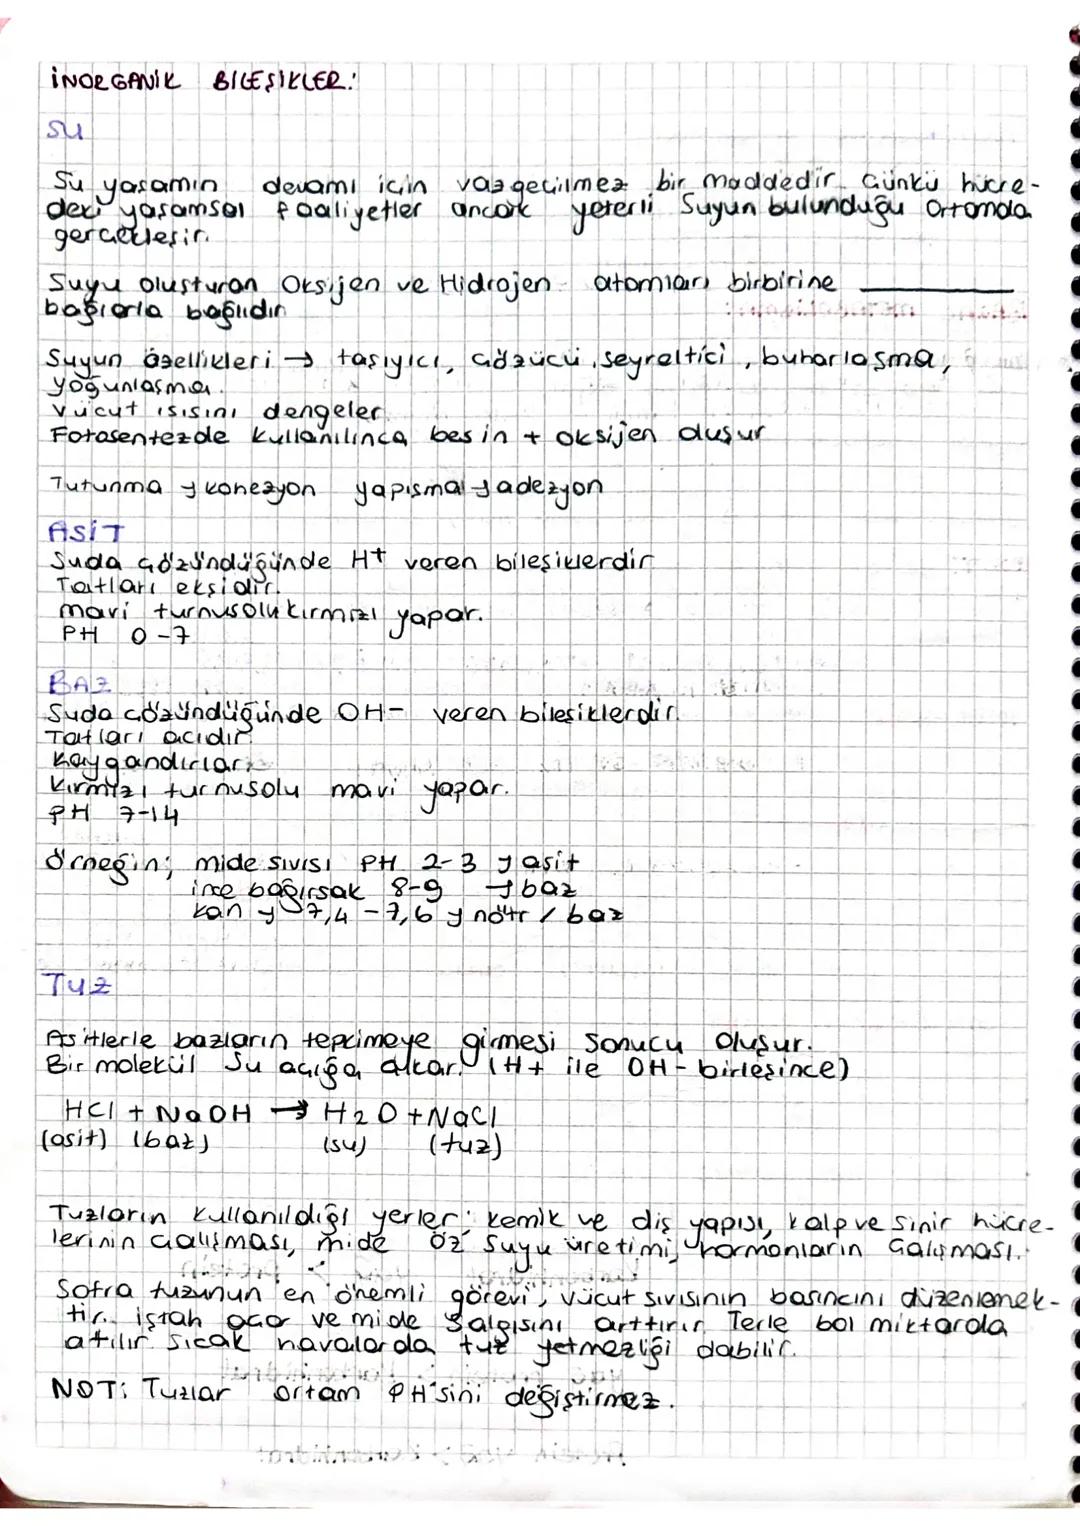 İNORGANİK BİLEŞİKLER:
SU
Su yaşamın devamı için vazgeçilmez bir maddedir. Çünkü hücre-
deki yaşamsal faaliyetler ancak yeterli suyun bulunduğu ortamda
gerçekleşir.
Suyu oluşturan Oksijen ve Hidrojen atomları birbirine ________
bağlarla bağlıdır.
Suyun özellikleri → taşıyıcı, çözücü, seyreltici, buharlaşma,
yoğunlaşma.
Vücut ısısını dengeler.
Fotosentezde kullanılınca besin + oksijen oluşur
Tutunma → kohezyon yapışma → adezyon
ASİT
Suda çözündüğünde H+ veren bileşiklerdir
Tatları ekşidir.
mavi turnusolu kırmızı yapar.
PH 0-7
BAZ
Suda çözündüğünde OH- veren bileşiklerdir.
Tatları acıdır.
Kaygandırlar.
Kırmızı turnusolu mavi yapar.
PH 7-14
Örneğin; mide sıvısı PH 2-3 → asit
ince bağırsak 8-9 → baz
kan → 7,4 - 7,6 → nötr / baz
TUZ
Asitlerle bazların tepkimeye girmesi sonucu oluşur.
Bir molekül su açığa çıkar. (H+ ile OH- birleşince)
HCl + NaOH → H2O + NaCl
(asit) (baz) (su) (tuz)
Tuzların kullanıldığı yerler: kemik ve diş yapısı, kalp ve sinir hücre-
lerinin çalışması, mide öz suyu üretimi, hormonların çalışması.
Sofra tuzunun en önemli görevi, vücut sıvısının basıncını düzenlemek-
tir. iştah açar ve mide salgısını arttırır. Terle bol miktarda
atılır. sıcak havalarda tuz yetmezliği olabilir.
NOT: Tuzlar ortam PH'sini değiştirmez.